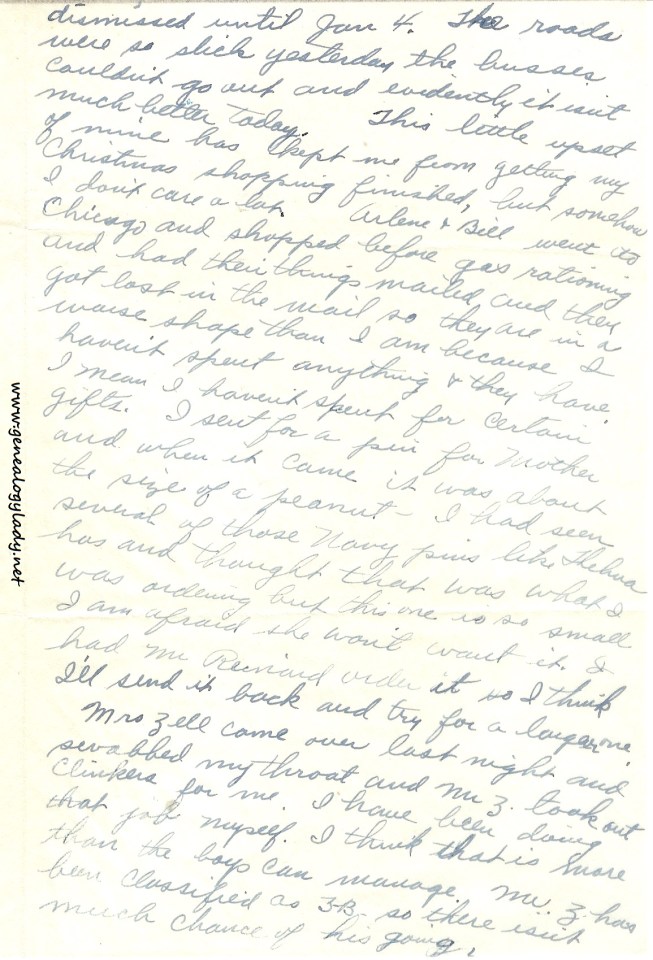 dismissed until Jan 4. The roads
were so slick yesterday the busses
couldn't go out and evidently it isn't
much better today. This little upset
of mine has kept me from getting my
Christmas shopping finished, but somehow
I don't care a lot. Arlene & Bill went to
Chicago and shopped before gas rationing
and had their things mailed and they
got lost in the mail so they are in a
worse shape than I am because I
haven't spent anything & they have.
I mean I haven't spent for certain
gifts. I sent for a pin for Mother
and when it came it was about
the size of a peanut - I had seen
several of those Navy pins like Thelma
has and thought that was what I
was ordering but this one is so small
I am afraid she won't want it. I
had Mr Reinard order it so I think
I'll send it back and try for a larger one.
Mrs Zell came over last night and
swabbed my throat and Mr Z. took out
clinkers for me. I have been doing
that job myself. I think that is more
than the boys can manage. Mr. Z has
been classified as 3-B so there isn't
much chance of his going.
www.genealogylady.net